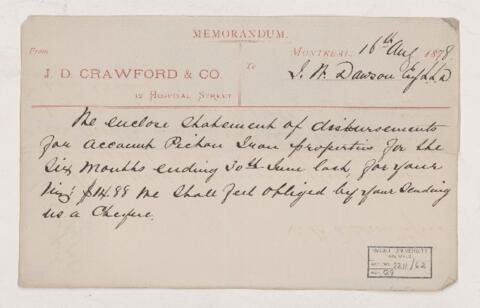 MEMORANDUM.
From
MONTREAL, 16th Aug 1878
To
J. D. CRAWFORD & CO.
J. W. Dawson Esq LLD
12 HOSPITAL STREET
We enclose Statement of disbursements
for account Pictou Iron properties for the
Six Months ending 30th June last, for your
$14.88 We Shall feel obliged by your Sending
us a Cheque.
McGILL UNIVERSITY
ARCHIVES
ACC. NO. 2211/62
REF. 29